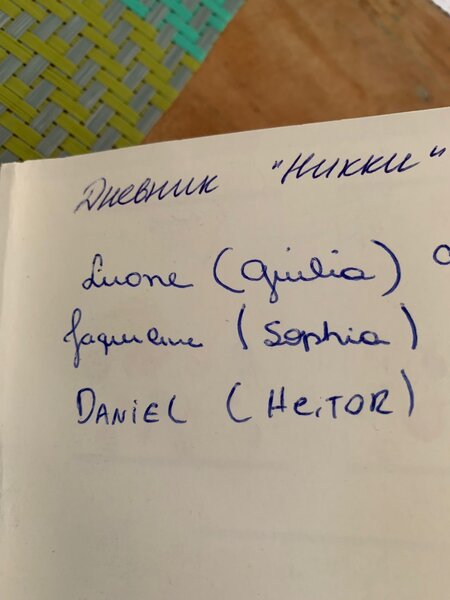 Дневник "Никки"
(Giulia)
Jaqueline (Sophia)
DANIEL (HEiTOR)